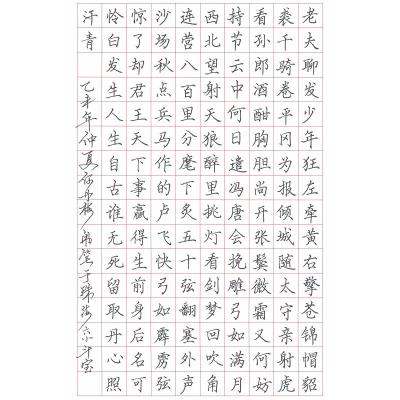 老夫聊发少年狂左牵黄右擎苍锦帽貂
裘千骑卷平冈为报倾城随太守亲射虎
看孙郎酒酣胸胆尚开张鬓微霜又何妨
持节云中何日遣冯唐会挽雕弓如满月
西北望射天狼醉里挑灯看剑梦回吹角
连营八百里分麾下炙五十弦翻塞外声
沙场秋点兵马作的卢飞快弓如霹雳弦
惊了却君王天下事赢得生前身后名可
怜白发生人生自古谁无死留取丹心照
汗青
乙未年仲夏于珠海斗室